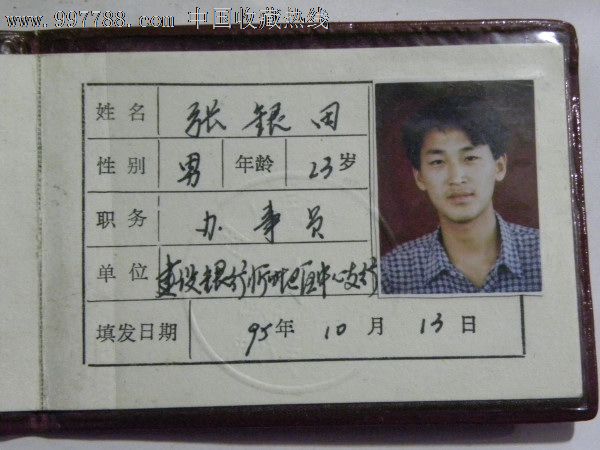 www.997788.com 中国收藏热线
姓名 张银田
性别 男 年龄 23岁
职务 办事员
单位 建设银行忻州地区中心支行
填发日期 95年 10月 13日